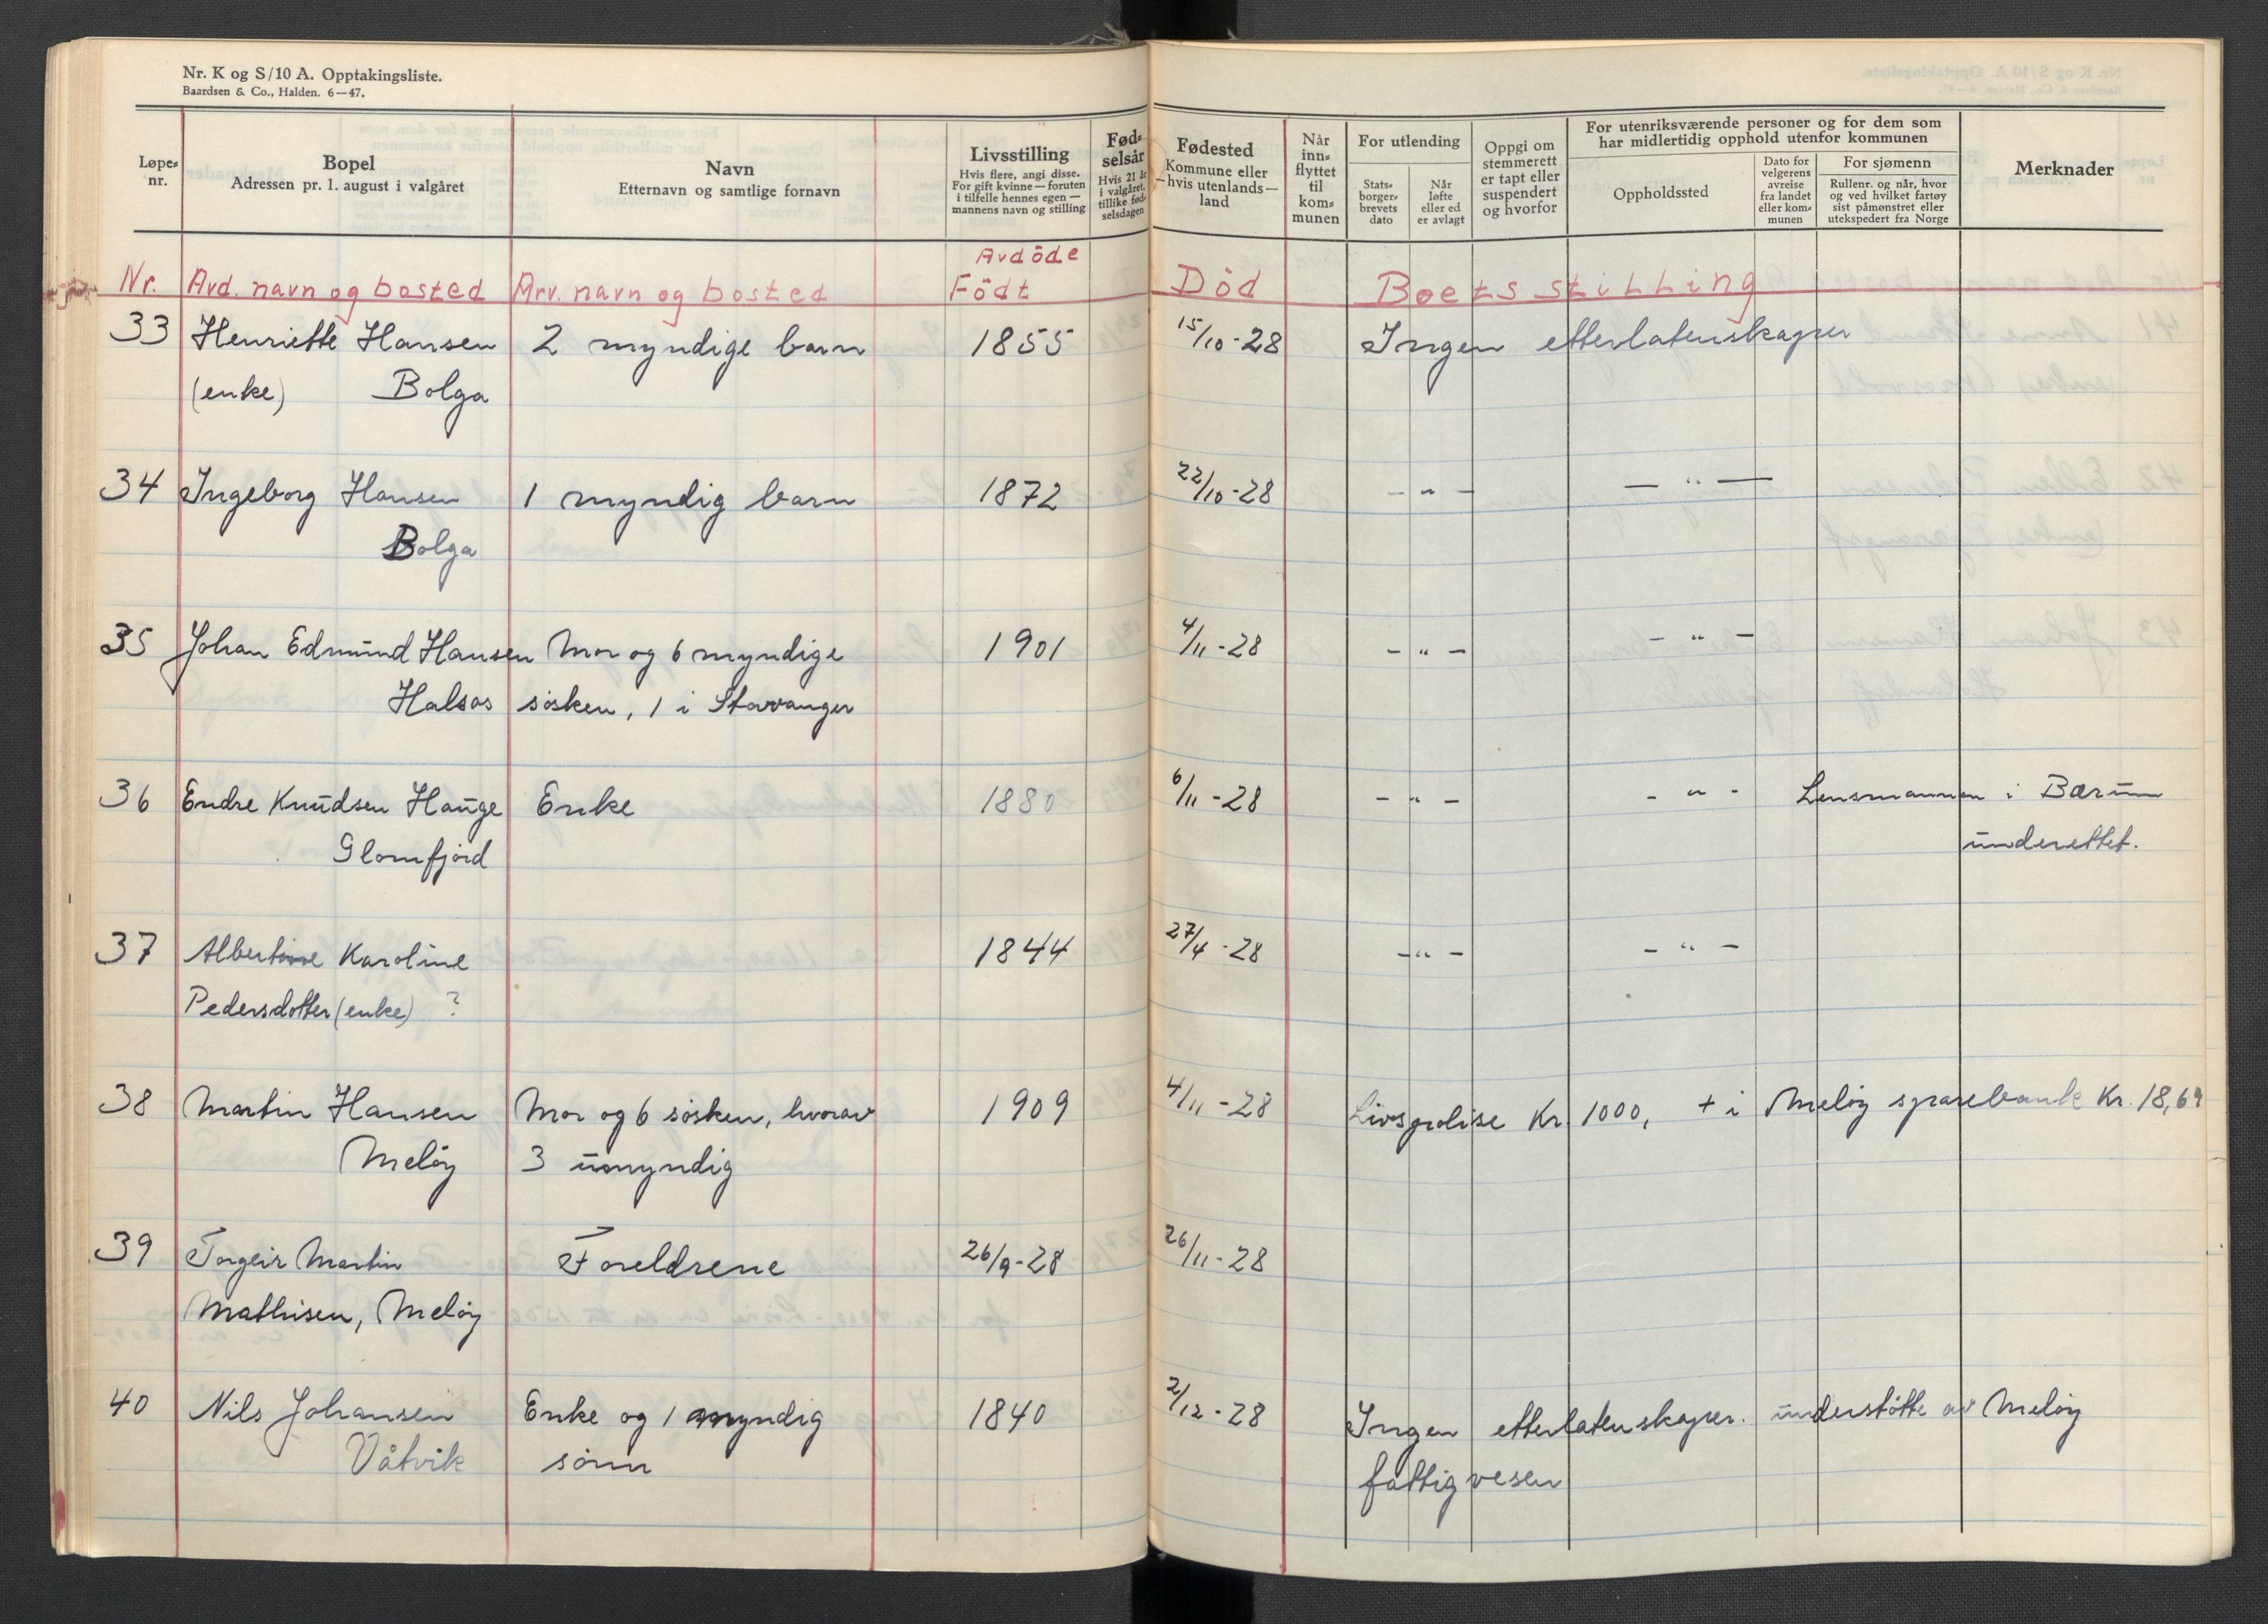 Nr. K og S/10 A. Opptakingsliste.
Baardsen & Co., Halden. 6—47.
Løpe-
nr.
Bopel
Adressen pr. 1. august i valgåret
Navn
Etternavn og samtlige fornavn
Livsstilling
Hvis flere, angi disse.
For gift kvinne — foruten
i tilfelle hennes egen —
mannens navn og stilling
Fød-
selsår
Hvis 21 år
i valgåret,
tillike fød-
selsdagen
Fødested
Kommune eller
—hvis utenlands—
land
Når
inn-
flyttet
til
kom-
munen
For utlending
Stats-
borger-
brevets
dato
Når
løfte
eller ed
er avlagt
Oppgi om
stemmerett
er tapt eller
suspendert
og hvorfor
For utenriksværende personer og for dem som
har midlertidig opphold utenfor kommunen
Oppholdssted
Dato for
velgerens
avreise
fra landet
eller kom-
munen
For sjømenn
Rullenr. og når, hvor
og ved hvilket fartøy
sist påmønstret eller
utekspedert fra Norge
Merknader
Avdöde
Nr. Avd. navn og bosted Arv. navn og bosted Födt Död Boets stilling
33 Henriette Hansen 2 myndige barn 1855 15/10-28 Ingen etterlatenskaper
(enke) Bolga
34 Ingeborg Hansen 1 myndig barn 1872 22/10-28 - " - — " —
Bolga
35 Johan Edmund Hansen Mor og 6 myndige 1901 4/11-28 - " - - " -
Halsos søsken, 1 i Stavanger
36 Endre Knudsen Hauge Enke 1880 6/11-28 - " - - " - Lensmannen i Bærum
Glomfjord underettet.
37 Albertine Karoline 1844 27/4-28 - " - - " -
Pedersdotter (enke) ?
38 Martin Hansen Mor og 6 søsken, hvorav 1909 4/11-28 Livspolise Kr. 1000, + i Meløy sparebank Kr. 18,69
Meløy 3 umyndig
39 Torgeir Martin Foreldrene 26/9-28 26/11-28
Mathisen, Meløy
40 Nils Johansen Enke og 1 myndig 1840 2/12-28 Ingen etterlatenskaper. understøtte av Meløy
Våtvik sønn fattigvesen